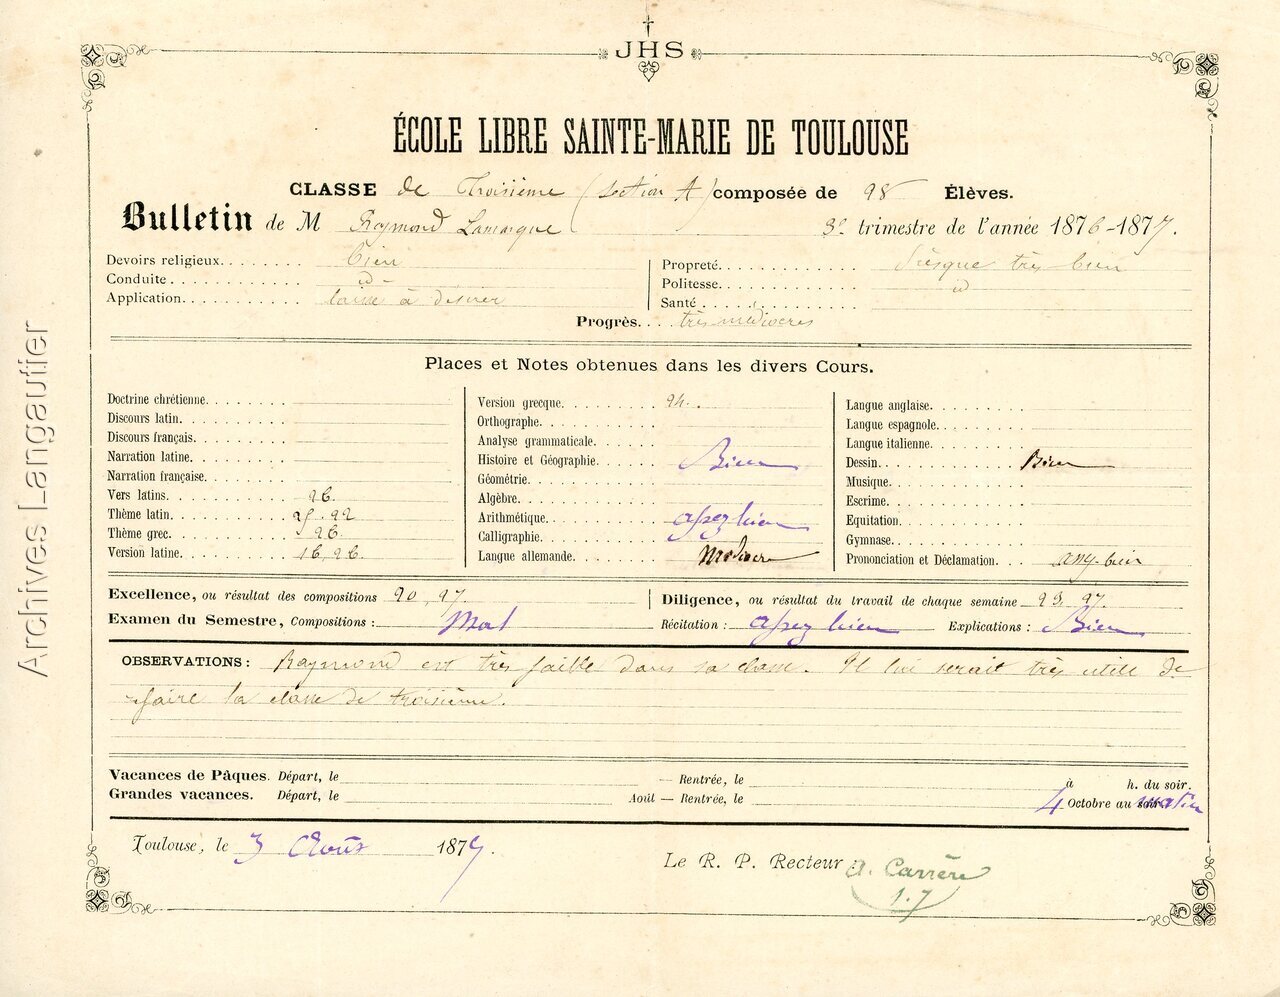 JHS
ÉCOLE LIBRE SAINTE-MARIE DE TOULOUSE
CLASSE de Troisième (section A) composée de 28 Élèves.
Bulletin de M Raymond Lamarque 3e trimestre de l'année 1876-1877.
Devoirs religieux bien
Conduite id
Application laisse à désirer
Propreté Presque très bien
Politesse id
Santé
Progrès très médiocres
Places et Notes obtenues dans les divers Cours.
Doctrine chrétienne
Discours latin
Discours français
Narration latine
Narration française
Vers latins 26
Thème latin 22
Thème grec 26
Version latine 16, 26
Version grecque 24
Orthographe
Analyse grammaticale
Histoire et Géographie Bien
Géométrie
Algèbre
Arithmétique assez bien
Calligraphie
Langue allemande Médiocre
Langue anglaise
Langue espagnole
Langue italienne
Dessin Bien
Musique
Escrime
Equitation
Gymnase
Prononciation et Déclamation bien
Excellence, ou résultat des compositions 20, 27.
Diligence, ou résultat du travail de chaque semaine 23, 27.
Examen du Semestre, Compositions : Mal
Récitation : assez bien Explications : Bien
OBSERVATIONS : Raymond est très faible dans sa classe. Il lui serait très utile de
refaire la classe de troisième.
Vacances de Pâques. Départ, le — Rentrée, le à h. du soir.
Grandes vacances. Départ, le Août — Rentrée, le 4 Octobre au soir matin
Toulouse, le 3 Août 1877.
Le R. P. Recteur A. Carrère
Archives Langautier